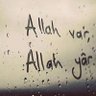 Allah var,
Allah yâr